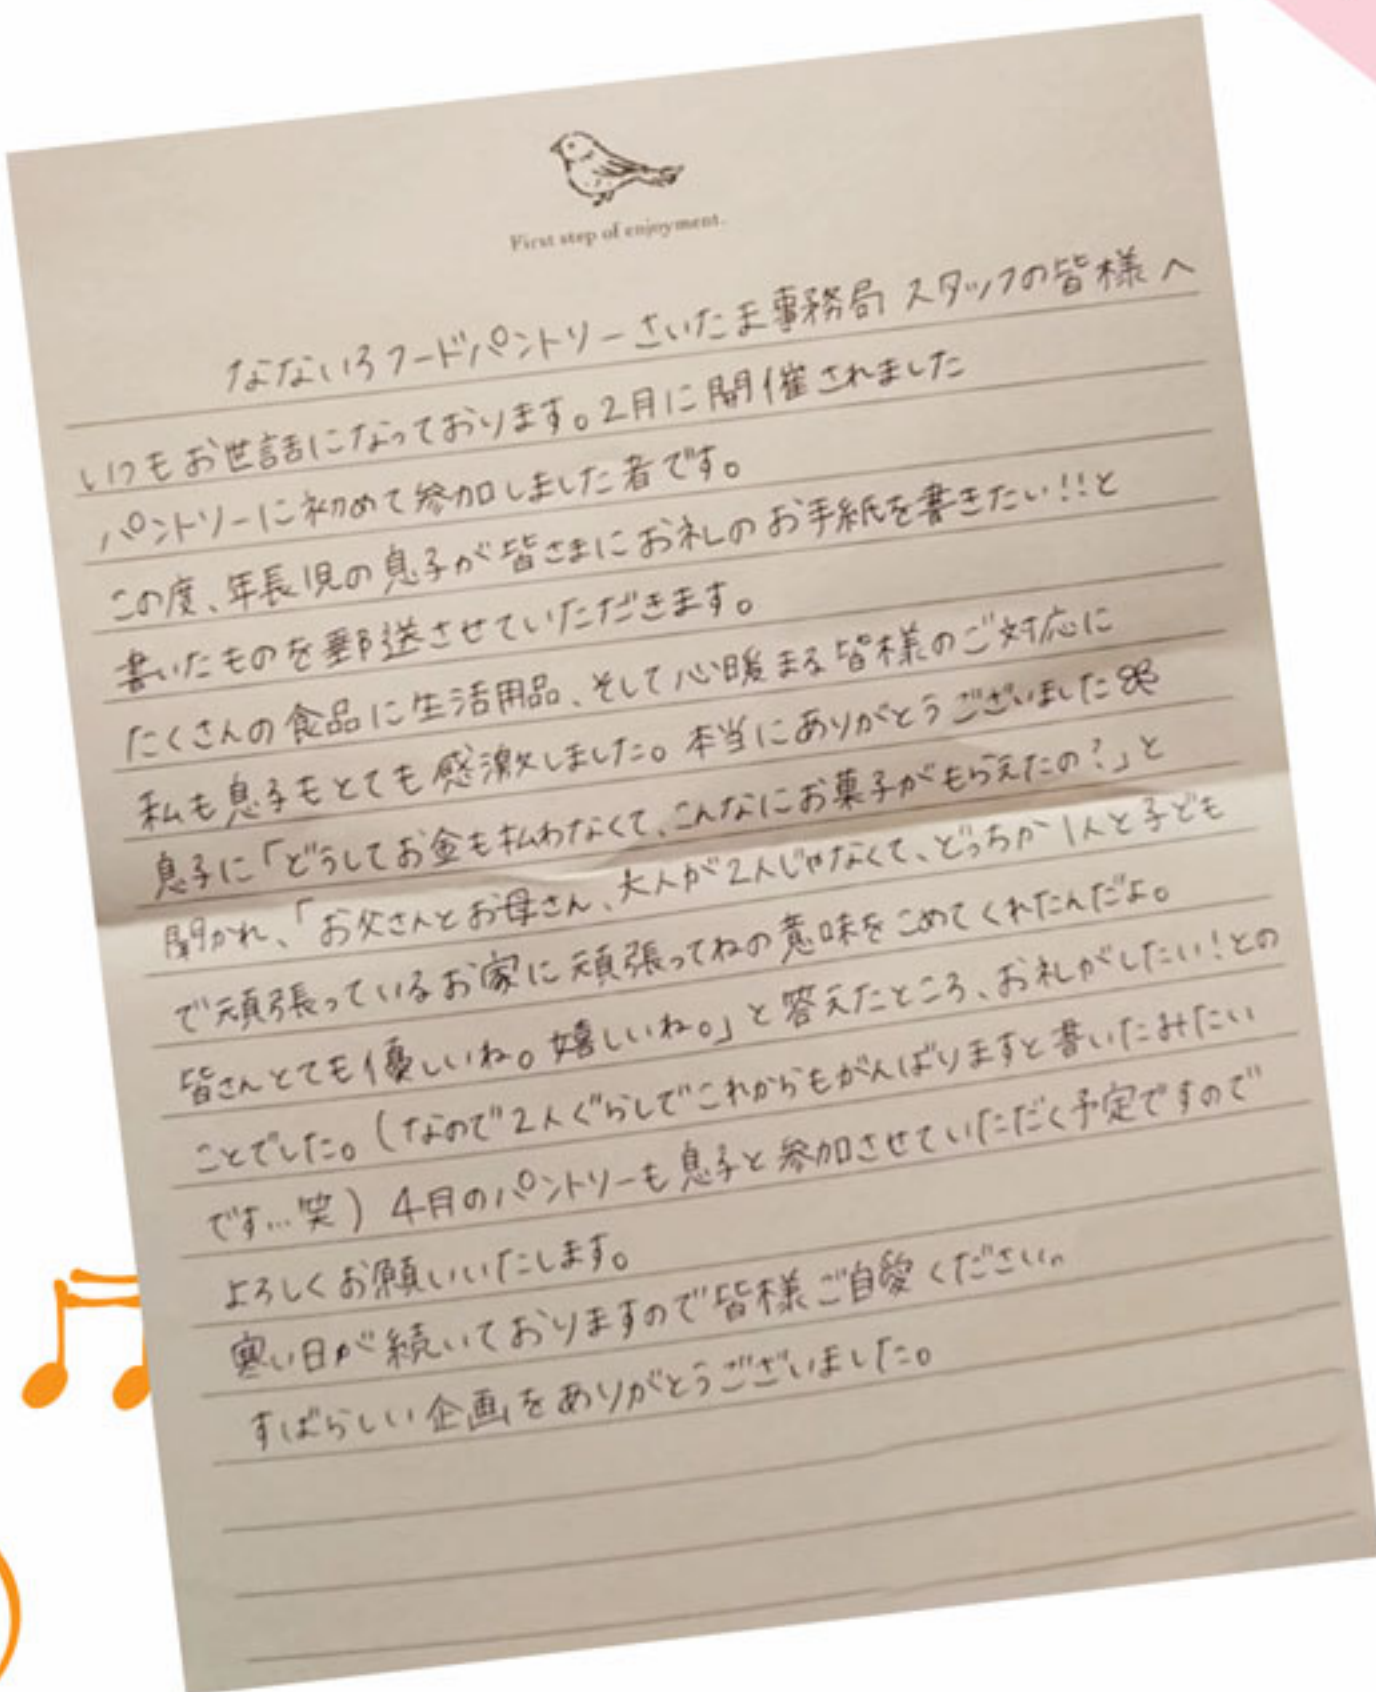 First step of enjoyment.
なないろフードパントリーさいたま事務局 スタッフの皆様へ
いつもお世話になっております。2月に開催されました
パントリーに初めて参加しました者です。
この度、年長児の息子が皆さまにお礼のお手紙を書きたい!!と
書いたものを郵送させていただきます。
たくさんの食品に生活用品、そして心暖まる皆様のご対応に
私も息子もとても感激しました。本当にありがとうございました
息子に「どうしてお金も払わなくて、こんなにお菓子がもらえたの?」と
聞かれ、「お父さんとお母さん、大人が2人じゃなくて、どっちか1人と子ども
で頑張っているお家に頑張ってねの意味をこめてくれたんだよ。
皆さんとても優しいね。嬉しいね。」と答えたところ、お礼がしたい!との
ことでした。(なので2人ぐらしでこれからもがんばりますと書いたみたい
です…笑) 4月のパントリーも息子と参加させていただく予定ですので
よろしくお願いいたします。
寒い日が続いておりますので皆様ご自愛ください。
すばらしい企画をありがとうございました。